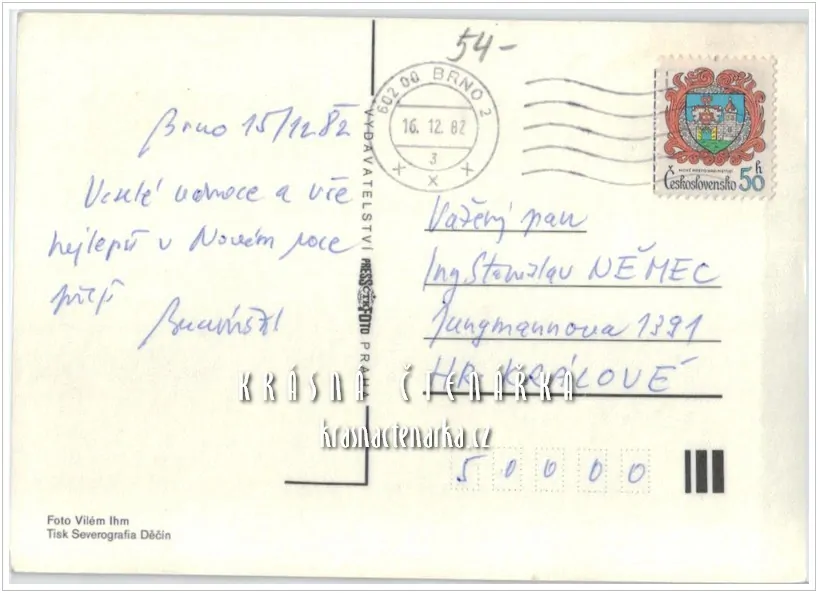 54-
602 00 BRNO 2
16.12.82
3
Československo 50 h
Brno 15/12 82
Veselé vánoce a vše
nejlepší v Novém roce
přejí
Vážený pan
Ing Stanislav NĚMEC
Jungmannova 1391
HR. KRÁLOVÉ
5 0 0 0 0
VYDAVATELSTVÍ PRESSFOTO PRAHA
ČTK
KRÁSNÁ ČTENÁŘKA
krasnactenarka.cz
Foto Vilém Ihm
Tisk Severografia Děčín